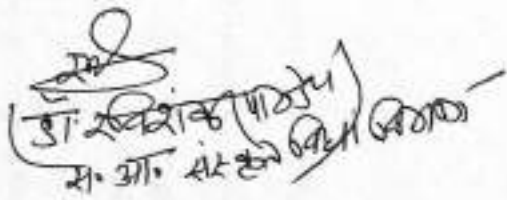 (डॉ. रविशंकर पाण्डेय)
स. आ. संस्कृत विद्या विभाग